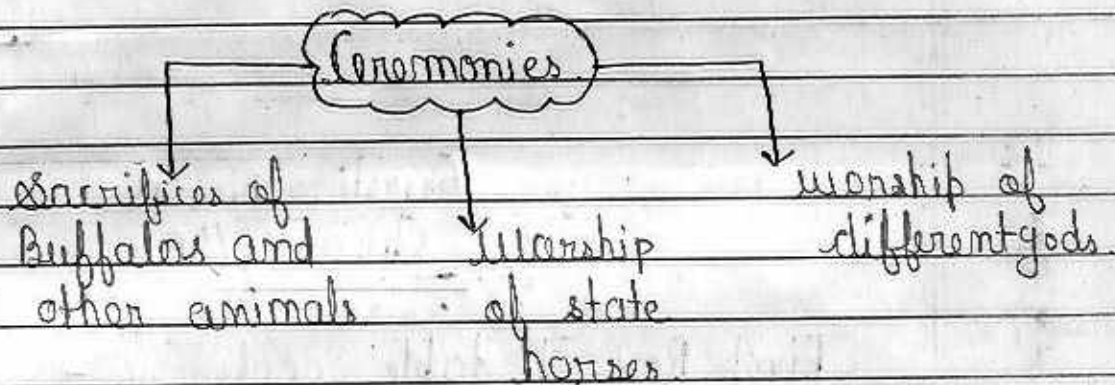 Ceremonies.
Sacrifices of
Buffalos and
other animals.
Worship
of state
horses.
worship of
different gods.